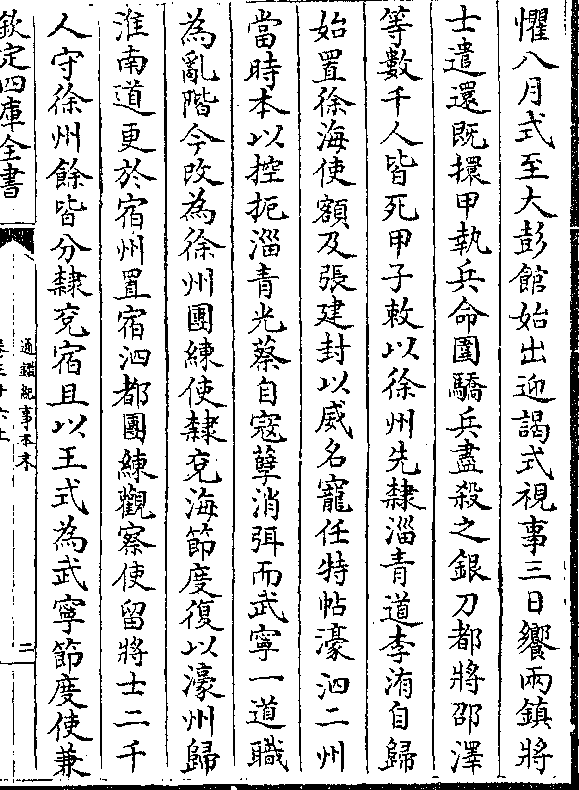 懼八月式至大彭館始出迎謁式視事三日饗兩鎮將
士遣還既擐甲執兵命圍驕兵盡殺之銀刀都將邵澤
等數千人皆死甲子敕以徐州先隸淄青道李洧自歸
始置徐海使額及張建封以威名寵任特帖濠泗二州
當時本以控扼淄青光蔡自寇孽消弭而武寧一道職
為亂階今改為徐州團練使隸兗海節度復以濠州歸
淮南道更於宿州置宿泗都團練觀察使留將士二千
人守徐州餘皆分隸兗宿且以王式為武寧節度使兼
欽定四庫全書
通鑑紀事本末
二